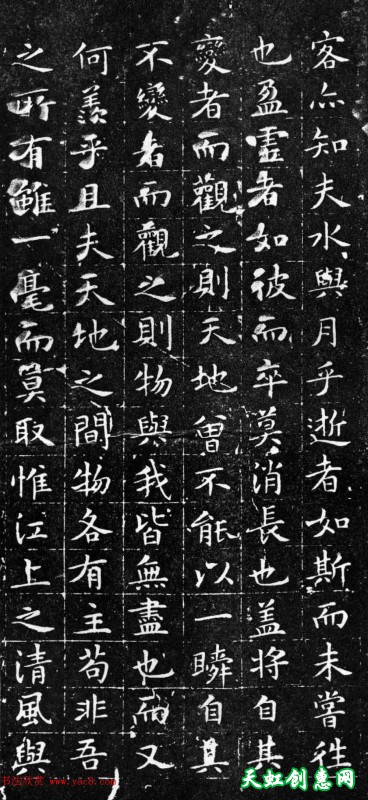 客亦知夫水與月乎逝者如斯而未嘗往
也盈虛者如彼而卒莫消長也盖將自其
變者而觀之則天地曾不能以一瞬自其
不變者而觀之則物與我皆無盡也而又
何羨乎且夫天地之間物各有主苟非吾
之所有雖一毫而莫取惟江上之清風與
书法欣赏 www.yac8.com
天虹创惠网